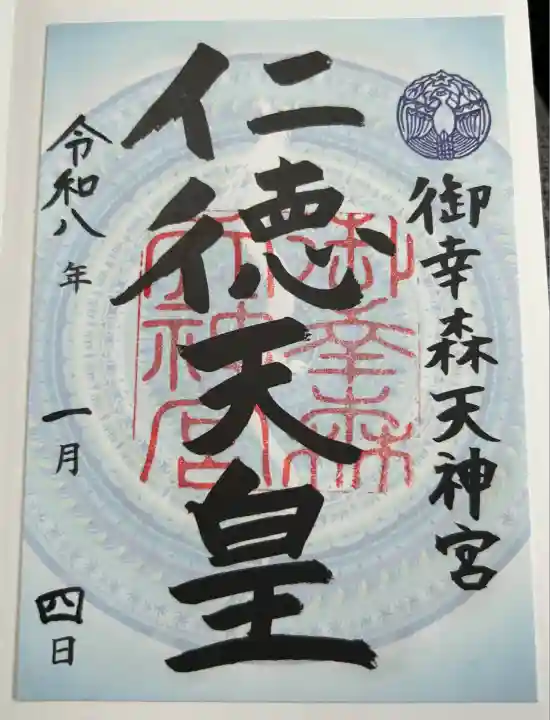 御幸森天神宮
仁徳天皇
御幸森
天神宮
令和八年 一月 四日